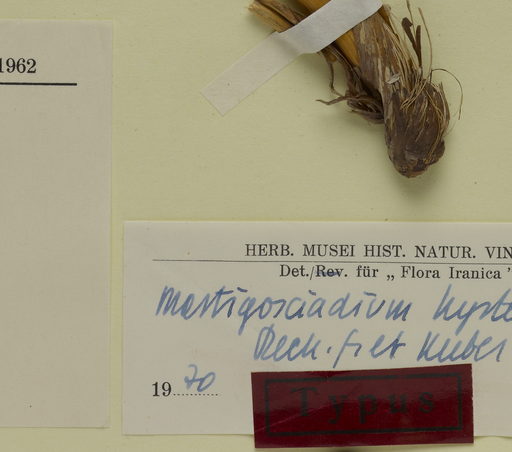 1962
HERB. MUSEI HIST. NATUR. VIN
Det./Rev. für „ Flora Iranica "
Mastigosciadium hyste
Rech. f. et Kuber
1970
Typus